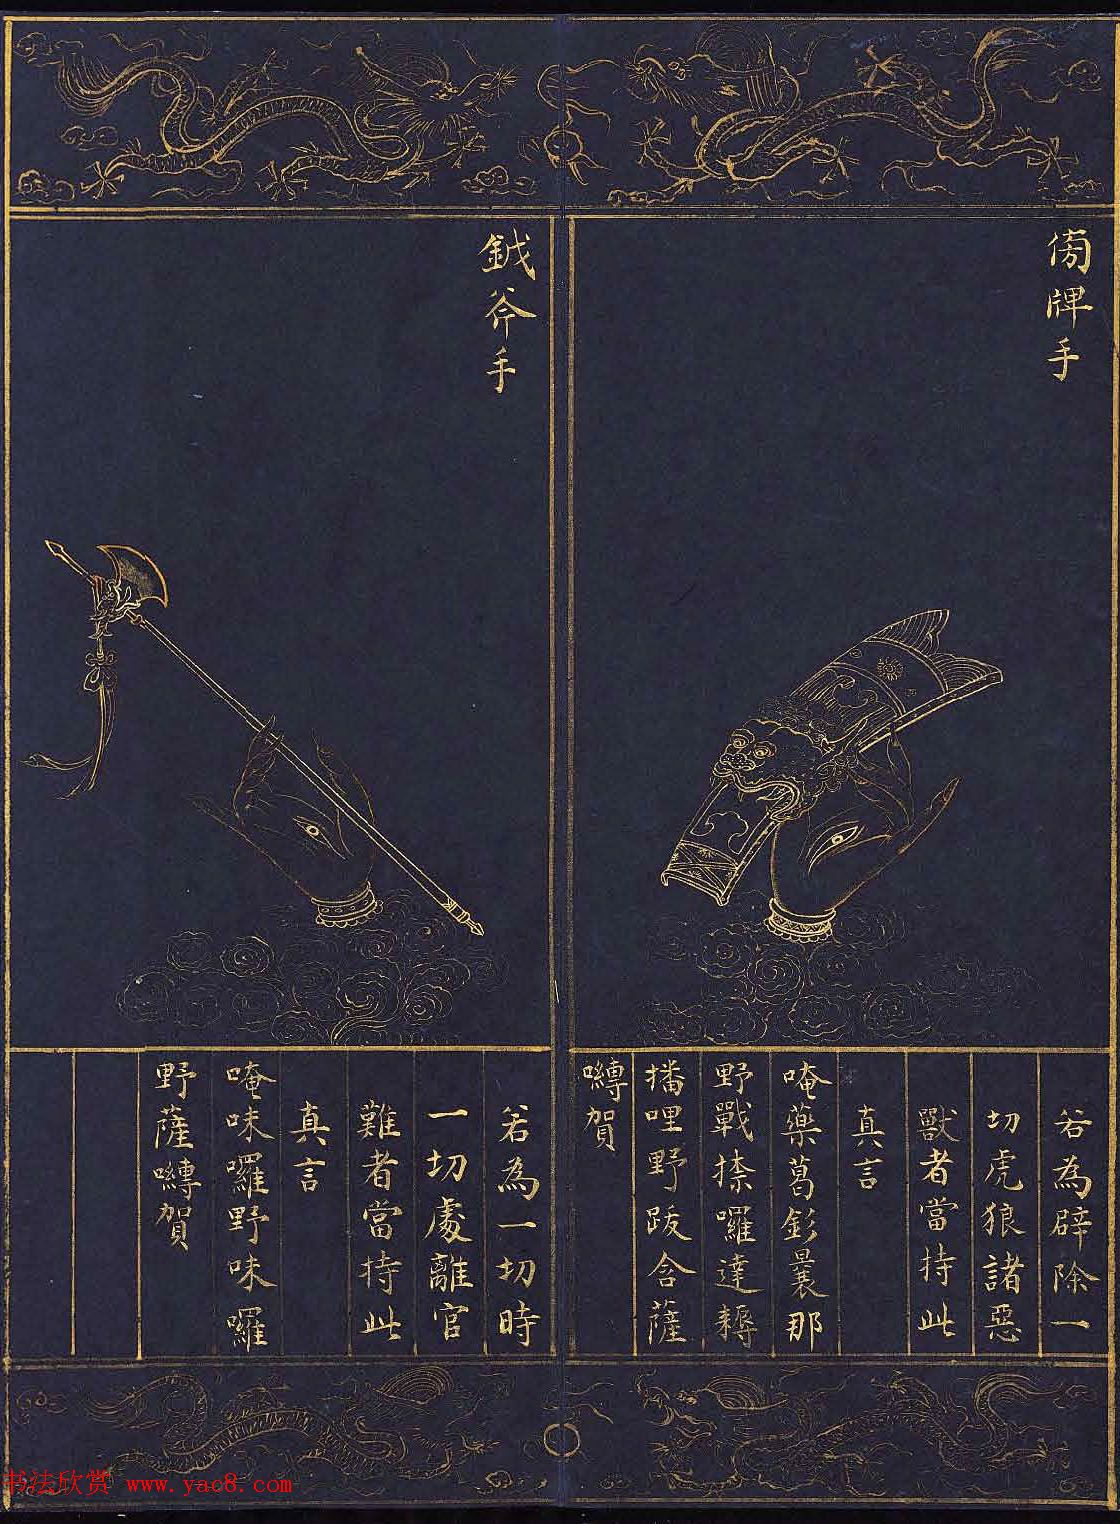 傍牌手
若為辟除一
切虎狼諸惡
獸者當持此
真言
唵藥葛釤曩那
野戰捺囉達耨
播哩野跋舍薩
嚩賀
鉞斧手
若為一切時
一切處離官
難者當持此
真言
唵味囉野味囉
野薩嚩賀
书法欣赏 www.yac8.com